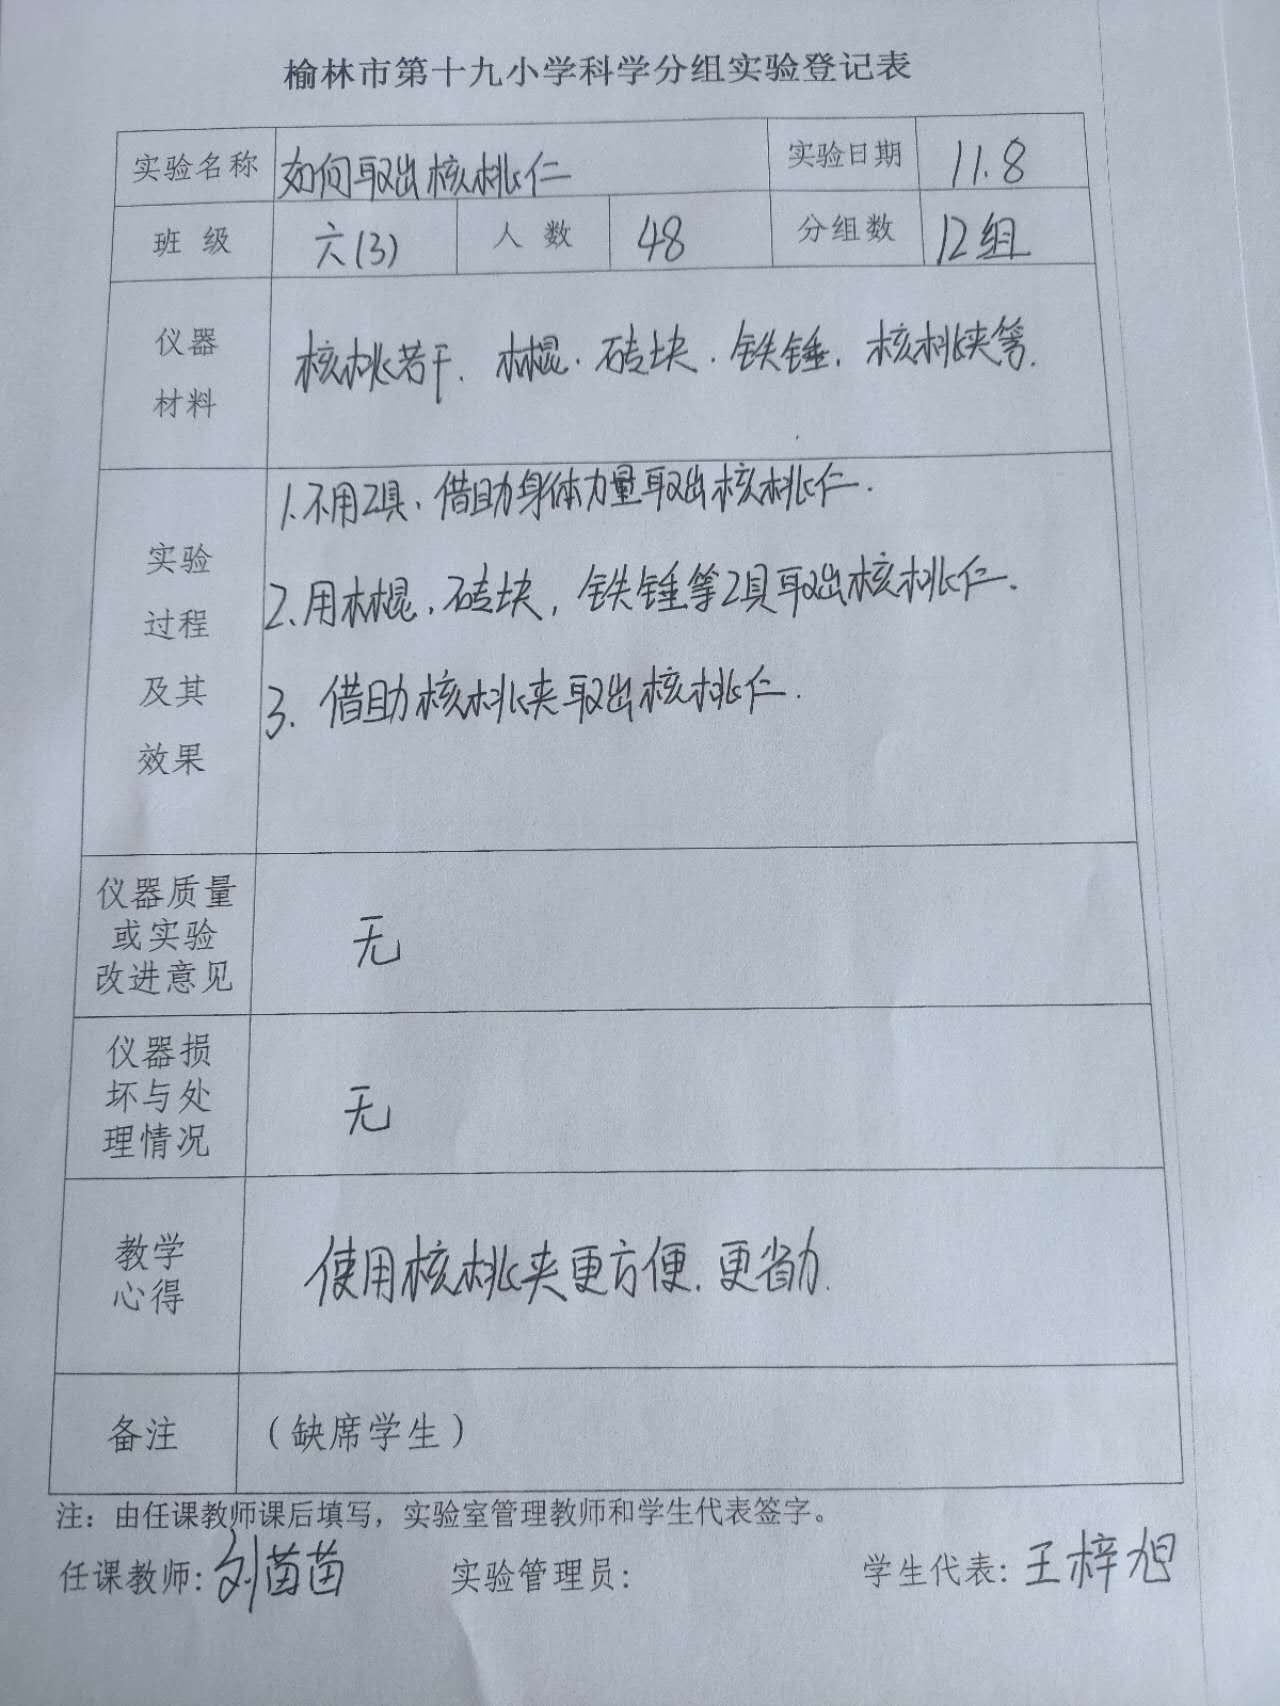 榆林市第十九小学科学分组实验登记表
实验名称 如何取出核桃仁 实验日期 11.8
班 级 六(3) 人 数 48 分组数 12组
仪器
材料
核桃若干、木棍、砖块、铁锤、核桃夹等.
实验
过程
及其
效果
1.不用工具、借助身体力量取出核桃仁.
2.用木棍、砖块,铁锤等工具取出核桃仁.
3.借助核桃夹取出核桃仁.
仪器质量
或实验
改进意见
无
仪器损
坏与处
理情况
无
教学
心得
使用核桃夹更方便.更省力.
备注 (缺席学生)
注：由任课教师课后填写，实验室管理教师和学生代表签字。
任课教师:刘苗苗 实验管理员: 学生代表:王梓旭